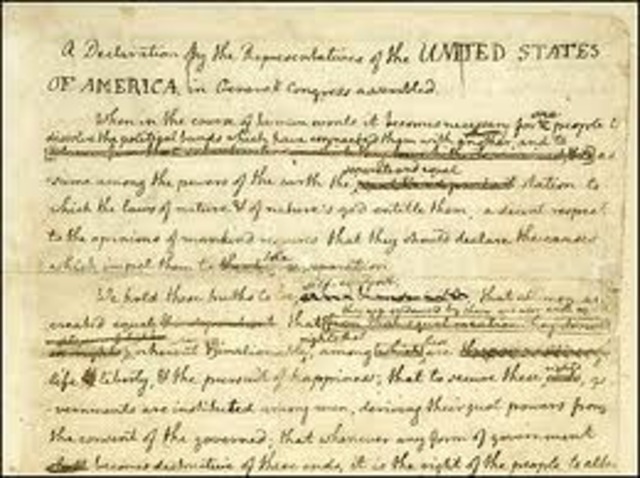 A Declaration by the Representatives of the UNITED STATES
OF AMERICA, in General Congress assembled.
When in the course of human events it becomes necessary for one people to
dissolve the political bands which have connected them with another, and to
as
separate and equal
sume among the powers of the earth the station to
which the laws of nature & of nature's god entitle them, a decent respect
to the opinions of mankind requires that they should declare the causes
which impel them to the separation.
self-evident
We hold these truths to be that all men are
they are endowed by their creator with
created equal that from that equal creation
rights that
inherent & inalienable, among which are
life & liberty, & the pursuit of happiness; that to secure these rights, go
vernments are instituted among men, deriving their just powers from
the consent of the governed; that whenever any form of government
becomes destructive of these ends, it is the right of the people to alter